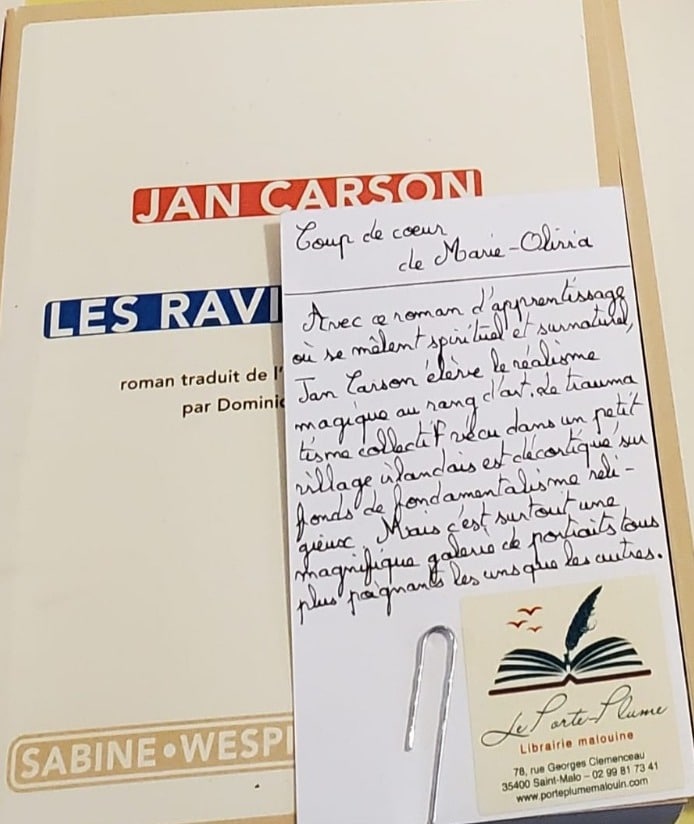 JAN CARSON
LES RAVI
roman traduit de l'
par Dominic
SABINE • WESPI
Coup de coeur
de Marie-Olivia
Avec ce roman d'apprentissage
où se mêlent spirituel et surnaturel,
Jan Carson élève le réalisme
magique au rang d'art. Le trauma
tisme collectif vécu dans un petit
village irlandais est décortiqué sur
fonds de fondamentalisme reli-
gieux. Mais c'est surtout une
magnifique galerie de portraits tous
plus poignants les uns que les autres.
Le Porte-Plume
Librairie malouine
78, rue Georges Clemenceau
35400 Saint-Malo – 02 99 81 73 41
www.porteplumemalouin.com